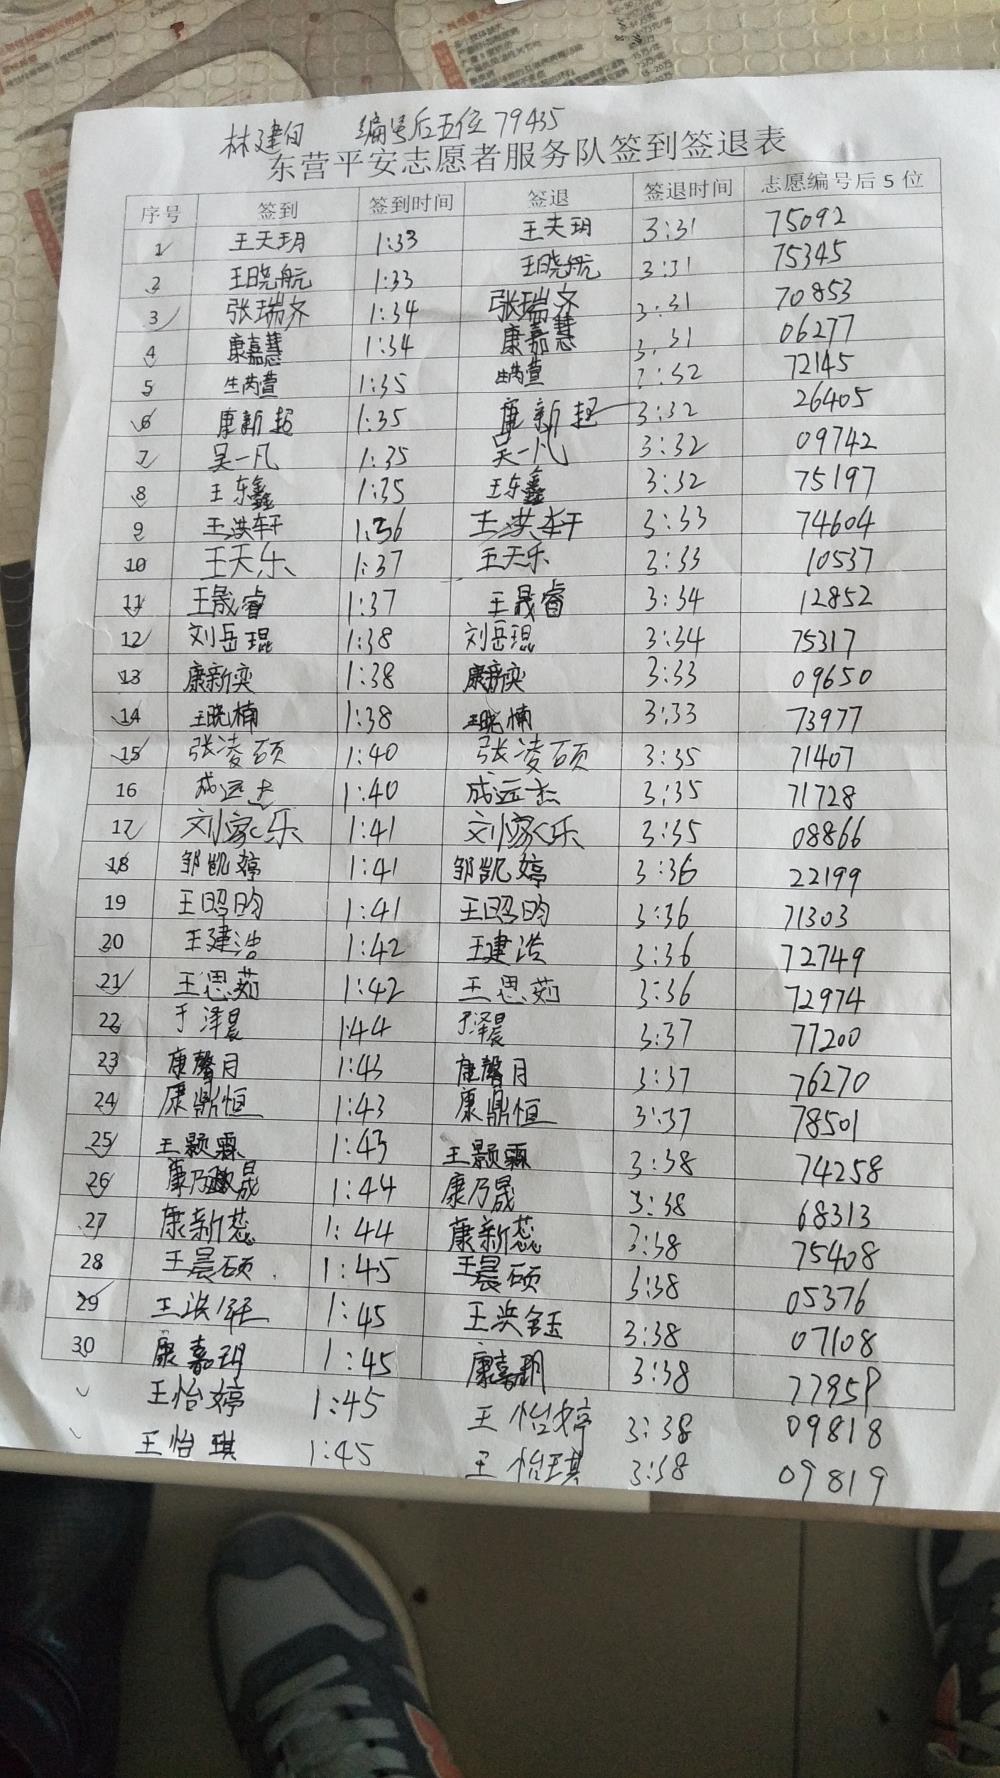 林建自 编号后五位 79435
东营平安志愿者服务队签到签退表
序号 签到 签到时间 签退 签退时间 志愿编号后5位
1 王天玥 1:33 王天玥 3:31 75092
2 王晓航 1:33 王晓航 3:31 75345
3 张瑞齐 1:34 张瑞齐 3:31 70853
4 康嘉慧 1:34 康嘉慧 3:31 06277
5 生芮萱 1:35 生芮萱 3:32 72145
6 康新超 1:35 康新超 3:32 26405
7 吴一凡 1:35 吴一凡 3:32 09742
8 王东鑫 1:35 王东鑫 3:32 75197
9 王洪轩 1:36 王洪轩 3:33 74604
10 王天乐 1:37 王天乐 3:33 10537
11 王晟睿 1:37 王晟睿 3:34 12852
12 刘岳琨 1:38 刘岳琨 3:34 75317
13 康新奕 1:38 康新奕 3:33 09650
14 王晓楠 1:38 王晓楠 3:33 73977
15 张凌硕 1:40 张凌硕 3:35 71407
16 成远杰 1:40 成远杰 3:35 71728
17 刘家乐 1:41 刘家乐 3:35 08866
18 邹凯婷 1:41 邹凯婷 3:36 22199
19 王昭昀 1:41 王昭昀 3:36 71303
20 王建浩 1:42 王建浩 3:36 72749
21 王思茹 1:42 王思茹 3:36 72974
22 于泽晨 1:44 于泽晨 3:37 77200
23 康馨月 1:43 康馨月 3:37 76270
24 康鼎恒 1:43 康鼎恒 3:37 78501
25 王颢霖 1:43 王颢霖 3:38 74258
26 康乃晟 1:44 康乃晟 3:38 68313
27 康新蕊 1:44 康新蕊 3:38 75408
28 王晨硕 1:45 王晨硕 3:38 05376
29 王洪 1:45 王洪 3:38 07108
30 康嘉玥 1:45 康嘉玥 3:38 77959
王怡婷 1:45 王怡婷 3:38 09818
王怡琪 1:45 王怡琪 3:38 09819